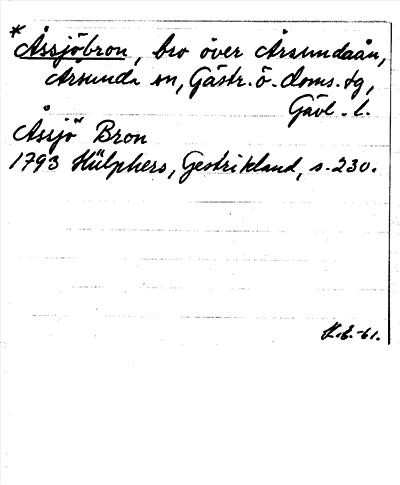 *
Åssjöbron, bro över Årsundaån,
Årsunda sn, Gästr. ö. doms. tg,
Gävl. l.
Åssjö Bron
1793 Hülphers, Gestrikland, s. 230.
K.E.-61.